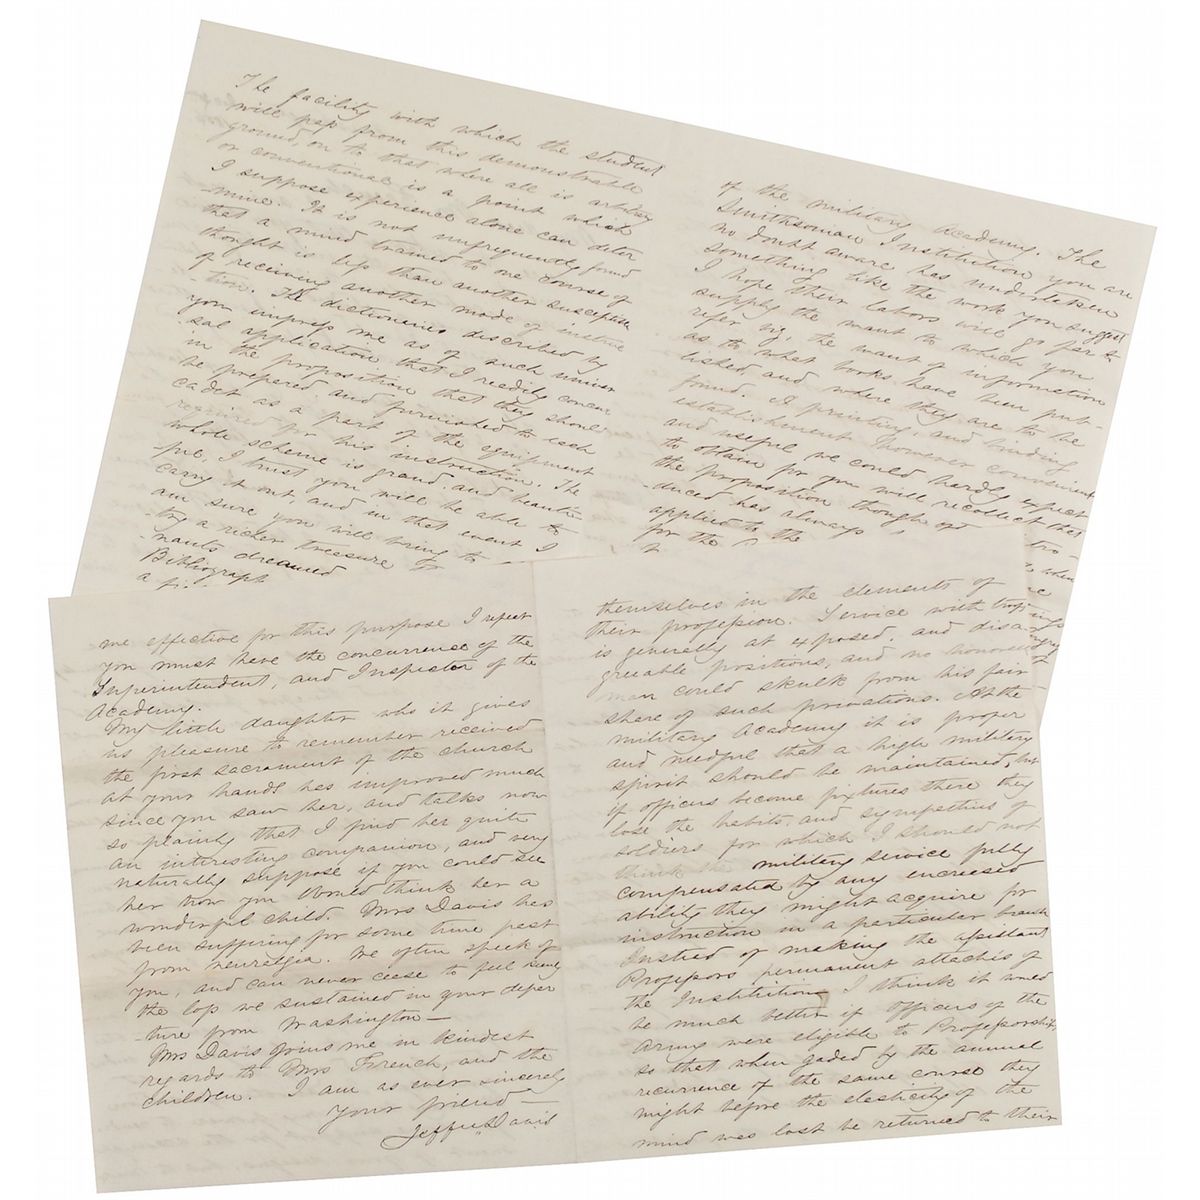 The facility with which the student
will pass from this demonstrable
ground, on to that where all is arbitrary
or conventional is a point which
I suppose experience alone can deter
mine. It is not unfrequently found
that a mind trained to one course of
thought is less than another susceptible
of receiving another mode of instruc
-tion. The dictionaries described by
you impress me as of such univer
sal application that I readily concur
in the proposition that they should
be prepared and furnished to each
cadet as a part of the equipment
required for his instruction. The
whole scheme is grand, and beauti-
ful. I trust you will be able to
carry it out and in that event I
am sure you will bring to
try a richer treasure
nauts dreamed
Bibliograph
a
of the military Academy. The
Smithsonian Institution you are
no doubt aware has undertaken
something like the work you suggest
I hope their labors will go far to
supply the want to which you
refer viz, the want of information
as to what books have been pub-
lished and where they are to be
found. A printing, and binding
establishment however convenient
and useful we could hardly expect
to obtain for you will recollect that
the proposition though
duced has always
applied to the
for the
me effective for this purpose I repeat
you must have the concurrence of the
Superintendent, and Inspector of the
Academy.
My little daughter who it gives
us pleasure to remember received
the first sacrament of the church
at your hands has improved much
since you saw her, and talks now
so plainly that I find her quite
an interesting companion, and very
naturally suppose if you could see
her now you Would think her a
wonderful child. Mrs Davis has
been suffering for some time past
from neuralgia. We often speak of
you, and can never cease to feel keenly
the loss we sustained in your depar
-ture from Washington—
Mrs Davis joins me in kindest
regards to Mrs French, and the
children. I am as ever sincerely
your friend—
Jeffn. Davis
themselves in the elements of
their profession. Service with troops
is generally at exposed, and disa-
greeable positions, and no honorable
man could skulk from his fair
share of such privations. At the
military Academy it is proper
and needful that a high military
spirit should be maintained, but
if officers become fixtures there they
lose the habits, and sympathies of
soldiers for which I should not
think the military service fully
compensated by any increased
ability they might acquire for
instruction in a particular branch
Instead of making the assistant
Professors permanent attachés of
the Institution, I think it would
be much better if officers of the
Army were eligible to Professorships,
so that when jaded by the annual
recurrence of the same course they
might before the elasticity of the
mind was lost be returned to their